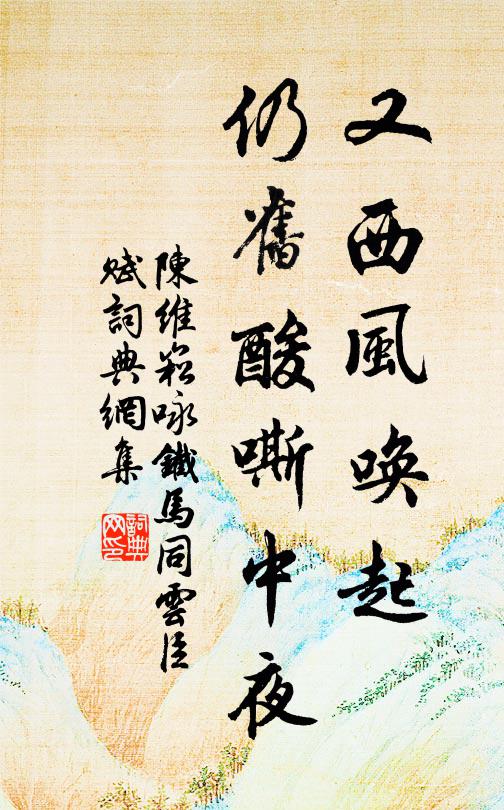 又西風喚起
仍舊酸嘶中夜
陳維崧咏鐵馬同雲臣
賦詞典網集
詞典
网印